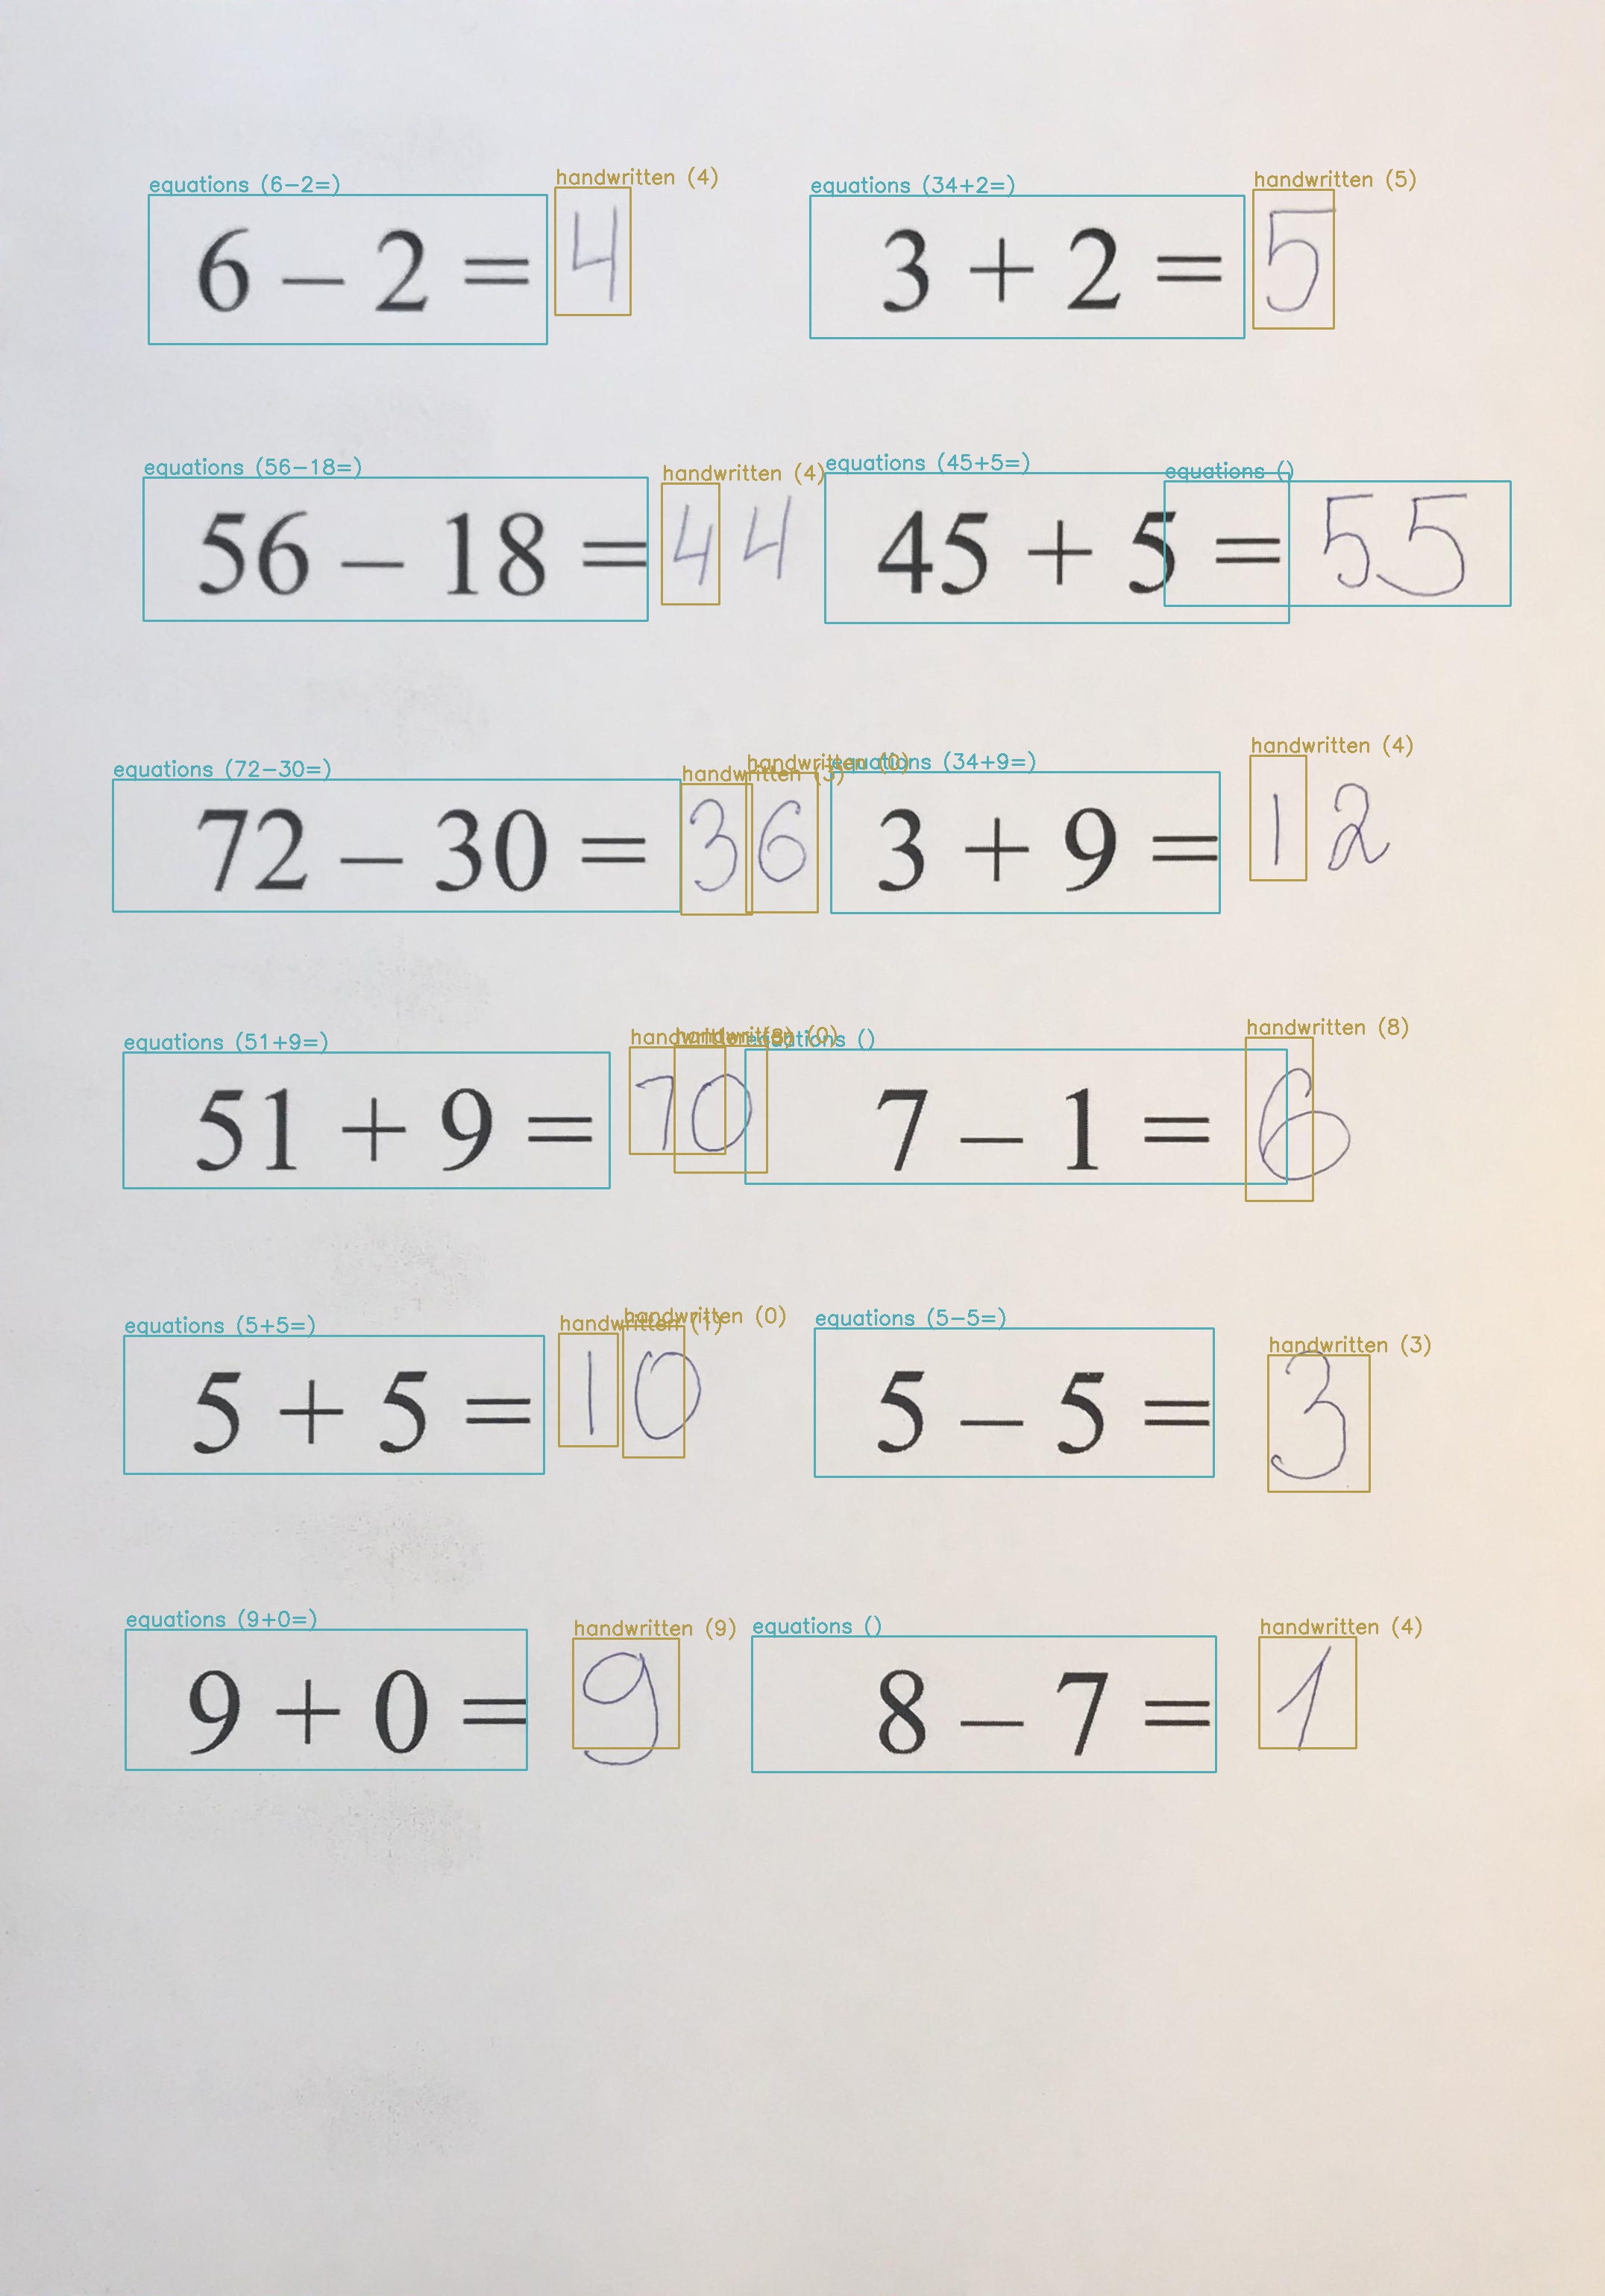 equations (6-2=) handwritten (4) equations (34+2=) handwritten (5)
6 – 2 = 4 3 + 2 = 5
equations (56-18=) handwritten (4) equations (45+5=) equations ()
56 – 18 = 44 45 + 5 = 55
equations (72-30=) handwritten (3) handwritten (0) equations (34+9=) handwritten (4)
72 – 30 = 36 3 + 9 = 12
equations (51+9=) handwritten (8) handwritten (0) equations () handwritten (8)
51 + 9 = 70 7 – 1 = 6
equations (5+5=) handwritten (1) handwritten (0) equations (5-5=) handwritten (3)
5 + 5 = 10 5 – 5 = 3
equations (9+0=) handwritten (9) equations () handwritten (4)
9 + 0 = 9 8 – 7 = 1